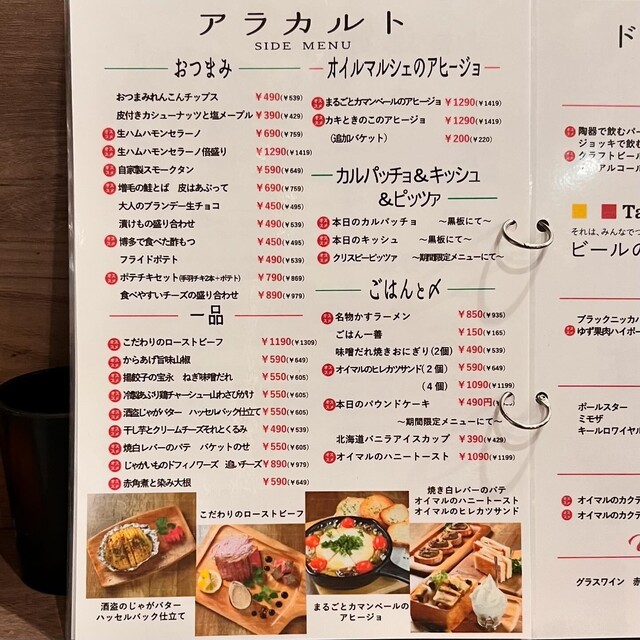 アラカルト
SIDE MENU
おつまみ
おつまみれんこんチップス ￥490(￥539)
皮付きカシューナッツと塩メープル ￥390(￥429)
生ハムハモンセラーノ ￥690(￥759)
生ハムハモンセラーノ倍盛り ￥1290(￥1419)
自家製スモークタン ￥590(￥649)
増毛の鮭とば 皮はあぶって ￥690(￥759)
大人のブランデー生チョコ ￥450(￥495)
漬けもの盛り合わせ ￥490(￥539)
博多で食べた酢もつ ￥450(￥495)
フライドポテト ￥490(￥539)
ポテチキセット(手羽チキ2本+ポテト) ￥790(￥869)
食べやすいチーズの盛り合わせ ￥890(￥979)
一品
こだわりのローストビーフ ￥1190(￥1309)
からあげ旨味山椒 ￥590(￥649)
揚餃子の宝永 ねぎ味噌だれ ￥550(￥605)
冷製あぶり鶏チャーシュー山わさびがけ ￥550(￥605)
酒盗じゃがバター ハッセルバック仕立て ￥550(￥605)
干し芋とクリームチーズそれとくるみ ￥490(￥539)
焼白レバーのパテ バケットのせ ￥550(￥605)
じゃがいものドフィノワーズ 追いチーズ ￥890(￥979)
赤角煮と染み大根 ￥590(￥649)
オイルマルシェのアヒージョ
まるごとカマンベールのアヒージョ ￥1290(￥1419)
カキときのこのアヒージョ ￥1290(￥1419)
(追加バケット) ￥200(￥220)
カルパッチョ&キッシュ
&ピッツァ
本日のカルパッチョ ～黒板にて～
本日のキッシュ ～黒板にて～
クリスピーピッツァ ～期間限定メニューにて～
ごはんと〆
名物かすラーメン ￥850(￥935)
ごはん一善 ￥150(￥165)
味噌だれ焼きおにぎり(2個) ￥490(￥539)
オイマルのヒレカツサンド(２個) ￥590(￥649)
(４個) ￥1090(￥1199)
本日のパウンドケーキ ￥490円(￥539)
～期間限定メニューにて～
北海道バニラアイスカップ ￥390(￥429)
オイマルのハニートースト ￥1090(￥1199)
酒盗のじゃがバター
ハッセルバック仕立て
こだわりのローストビーフ
まるごとカマンベールの
アヒージョ
焼き白レバーのパテ
オイマルのハニートースト
オイマルのヒレカツサンド
ド
陶器で飲むバー
ジョッキで飲む
クラフトビール
コアルコール
Ta
それは、みんなでつ
ビールの
ブラックニッカ
ゆず果肉ハイボー
ポールスター
ミモザ
キールロワイヤル
オイマルのカクテ
オイマルのカクテ
グラスワイン 赤